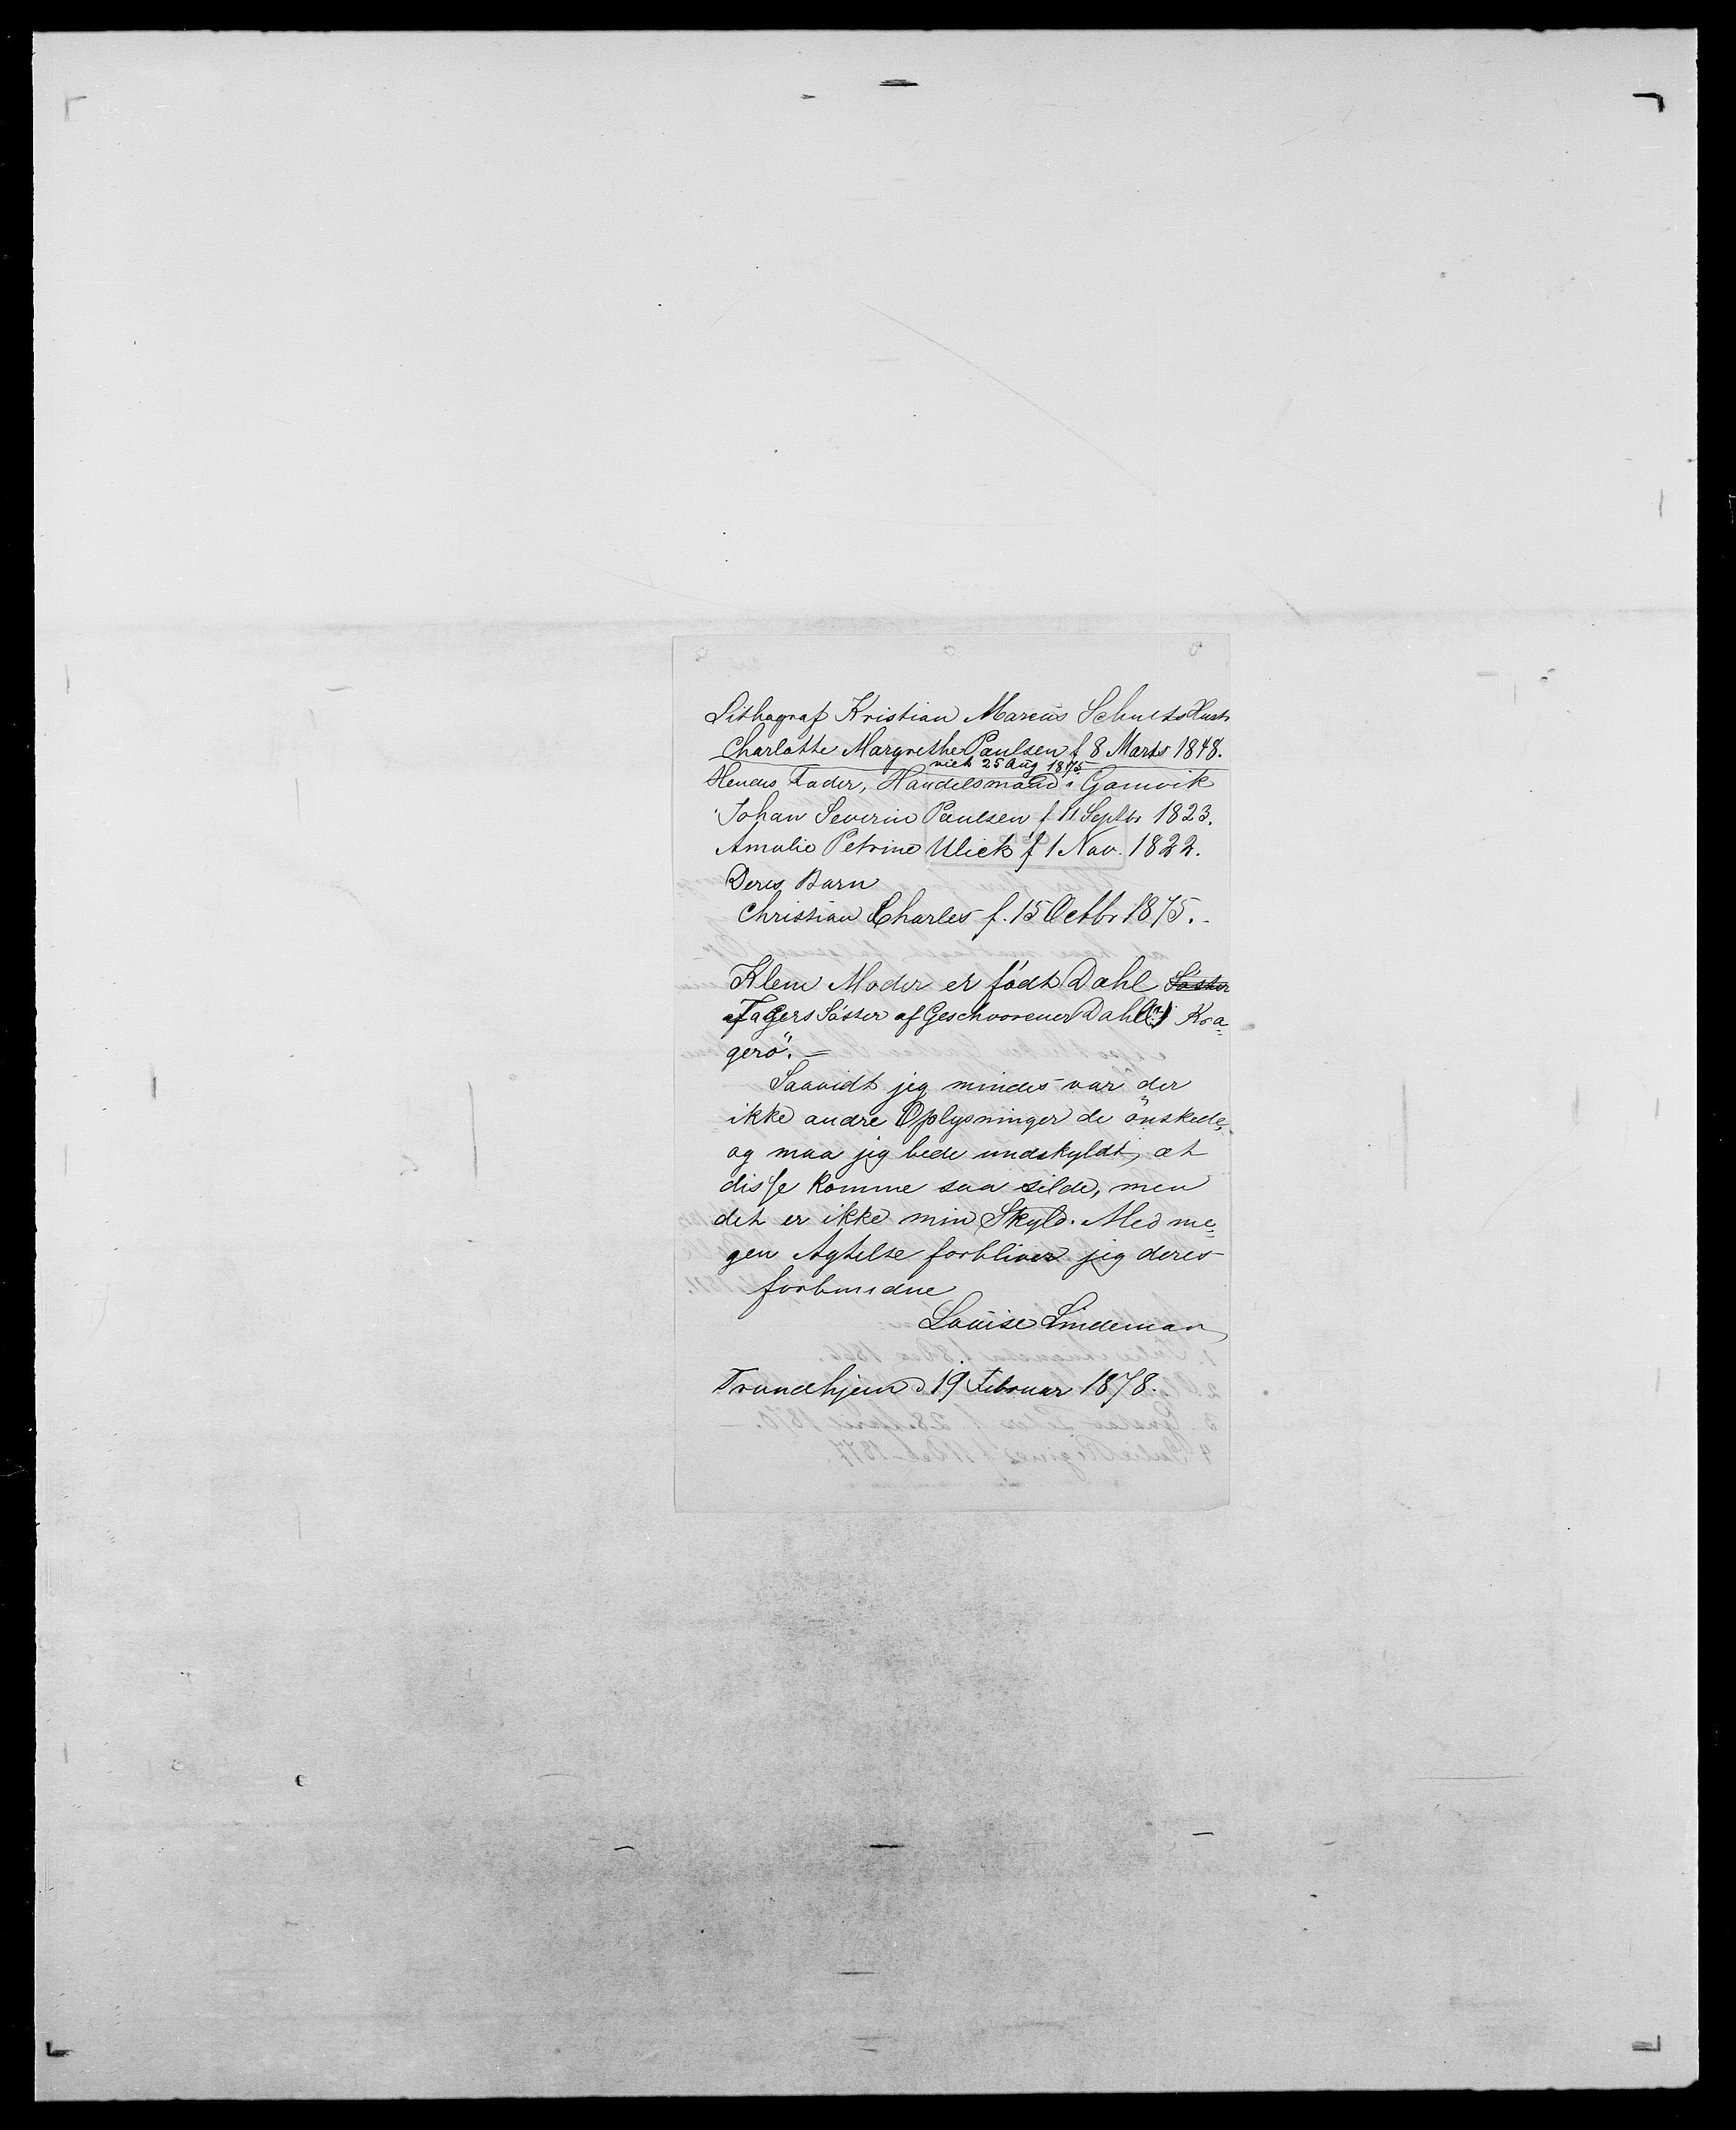 Lithograf Kristian Marcus Schults Hustr
Charlotte Margrethe Paulsen f 8 Marts 1848.
viet 25 Aug 1875
Hendes Fader, Handelsmand i Gamvik
Johan Severin Paulsen f 11 Septbr 1823.
Amalie Petrine Ulich f 1 Nov. 1822.
Deres Barn
Christian Charles f. 15 Octbr 1875.
Klem Moder er födt Dahl Söster
af Fagers Söster af Geschvorener Dahl Kra=
gerö. =
Saavidt jeg mindes var der
ikke andre Oplysninger de önskede,
og maa jeg bede undskyldt, at
disse komme saa silde, men
det er ikke min Skyld. Med me=
gen Agtelse forbliver jeg deres
forbundne
Louise Lindeman
Trondhjem d 19 Februar 1878.